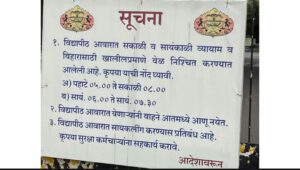 सूचना
१. विद्यापीठ आवारात सकाळी व सायंकाळी व्यायाम व
विहारासाठी खालीलप्रमाणे वेळ निश्चित करण्यात
आलेली आहे. कृपया याची नोंद घ्यावी.
अ) पहाटे ०५.०० ते सकाळी ०८.००
ब) सायं. ०६.०० ते सायं. ०७.३०
२. विद्यापीठ आवारात येणाऱ्यांनी वाहने आतमध्ये आणू नयेत.
३. विद्यापीठ आवारात सायकलींग करण्यास प्रतिबंध आहे.
कृपया सुरक्षा कर्मचाऱ्यांना सहकार्य करावे.
आदेशावरून